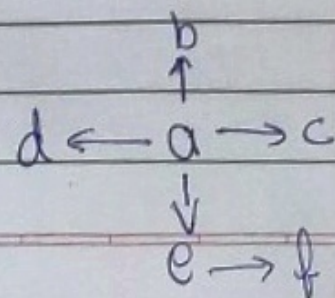 b
↑
d ← a → c
↓
e → f